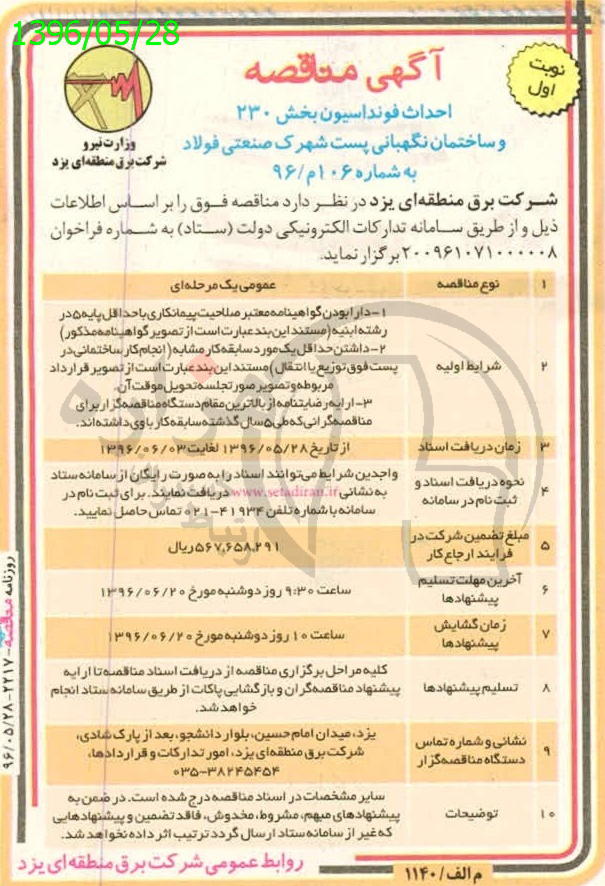 1396/05/28
نوبت اول
آگهی مناقصه
احداث فونداسیون بخش ۲۳۰
و ساختمان نگهبانی پست شهرک صنعتی فولاد
به شماره ۱۰۶م/۹۶
وزارت نیرو
شرکت برق منطقه‌ای یزد
شرکت برق منطقه‌ای یزد در نظر دارد مناقصه فوق را بر اساس اطلاعات
ذیل و از طریق سامانه تدارکات الکترونیکی دولت (ستاد) به شماره فراخوان
۲۰۰۹۶۱۰۷۱۰۰۰۰۰۸ برگزار نماید.
۱ نوع مناقصه عمومی یک مرحله‌ای
۲ شرایط اولیه
۱- دارا بودن گواهینامه معتبر صلاحیت پیمانکاری با حداقل پایه ۵ در
رشته ابنیه (مستند این بند عبارت است از تصویر گواهینامه مذکور)
۲- داشتن حداقل یک مورد سابقه کار مشابه (انجام کار ساختمانی در
پست فوق توزیع یا انتقال) مستند این بند عبارت است از تصویر قرارداد
مربوطه و تصویر صورتجلسه تحویل موقت آن.
۳- ارایه رضایتنامه از بالاترین مقام دستگاه مناقصه‌گزار برای
مناقصه‌گرانی که طی ۵ سال گذشته سابقه کار با وی داشته‌اند.
۳ زمان دریافت اسناد از تاریخ ۱۳۹۶/۰۵/۲۸ لغایت ۱۳۹۶/۰۶/۰۳
۴ نحوه دریافت اسناد و
ثبت نام در سامانه
واجدین شرایط می‌توانند اسناد را به صورت رایگان از سامانه ستاد
به نشانی www.setadiran.ir دریافت نمایند. برای ثبت نام در
سامانه با شماره تلفن ۴۱۹۳۴-۰۲۱ تماس حاصل نمایید.
۵ مبلغ تضمین شرکت در
فرایند ارجاع کار
۵۶۷,۶۵۸,۲۹۱ ریال
۶ آخرین مهلت تسلیم
پیشنهادها
ساعت ۹:۳۰ روز دوشنبه مورخ ۱۳۹۶/۰۶/۲۰
۷ زمان گشایش
پیشنهادها
ساعت ۱۰ روز دوشنبه مورخ ۱۳۹۶/۰۶/۲۰
۸ تسلیم پیشنهادها
کلیه مراحل برگزاری مناقصه از دریافت اسناد مناقصه تا ارایه
پیشنهاد مناقصه‌گران و بازگشایی پاکات از طریق سامانه ستاد انجام
خواهد شد.
۹ نشانی و شماره تماس
دستگاه مناقصه‌گزار
یزد، میدان امام حسین، بلوار دانشجو، بعد از پارک شادی،
شرکت برق منطقه‌ای یزد، امور تدارکات و قراردادها،
۰۳۵-۳۸۲۴۵۴۵۴
۱۰ توضیحات
سایر مشخصات در اسناد مناقصه درج شده است. در ضمن به
پیشنهادهای مبهم، مشروط، مخدوش، فاقد تضمین و پیشنهادهایی
که غیر از سامانه ستاد ارسال گردد ترتیب اثر داده نخواهد شد.
روابط عمومی شرکت برق منطقه‌ای یزد
م الف/۱۱۴۰
روزنامه مناقصه-۲۲۱۷-۹۶/۰۵/۲۸